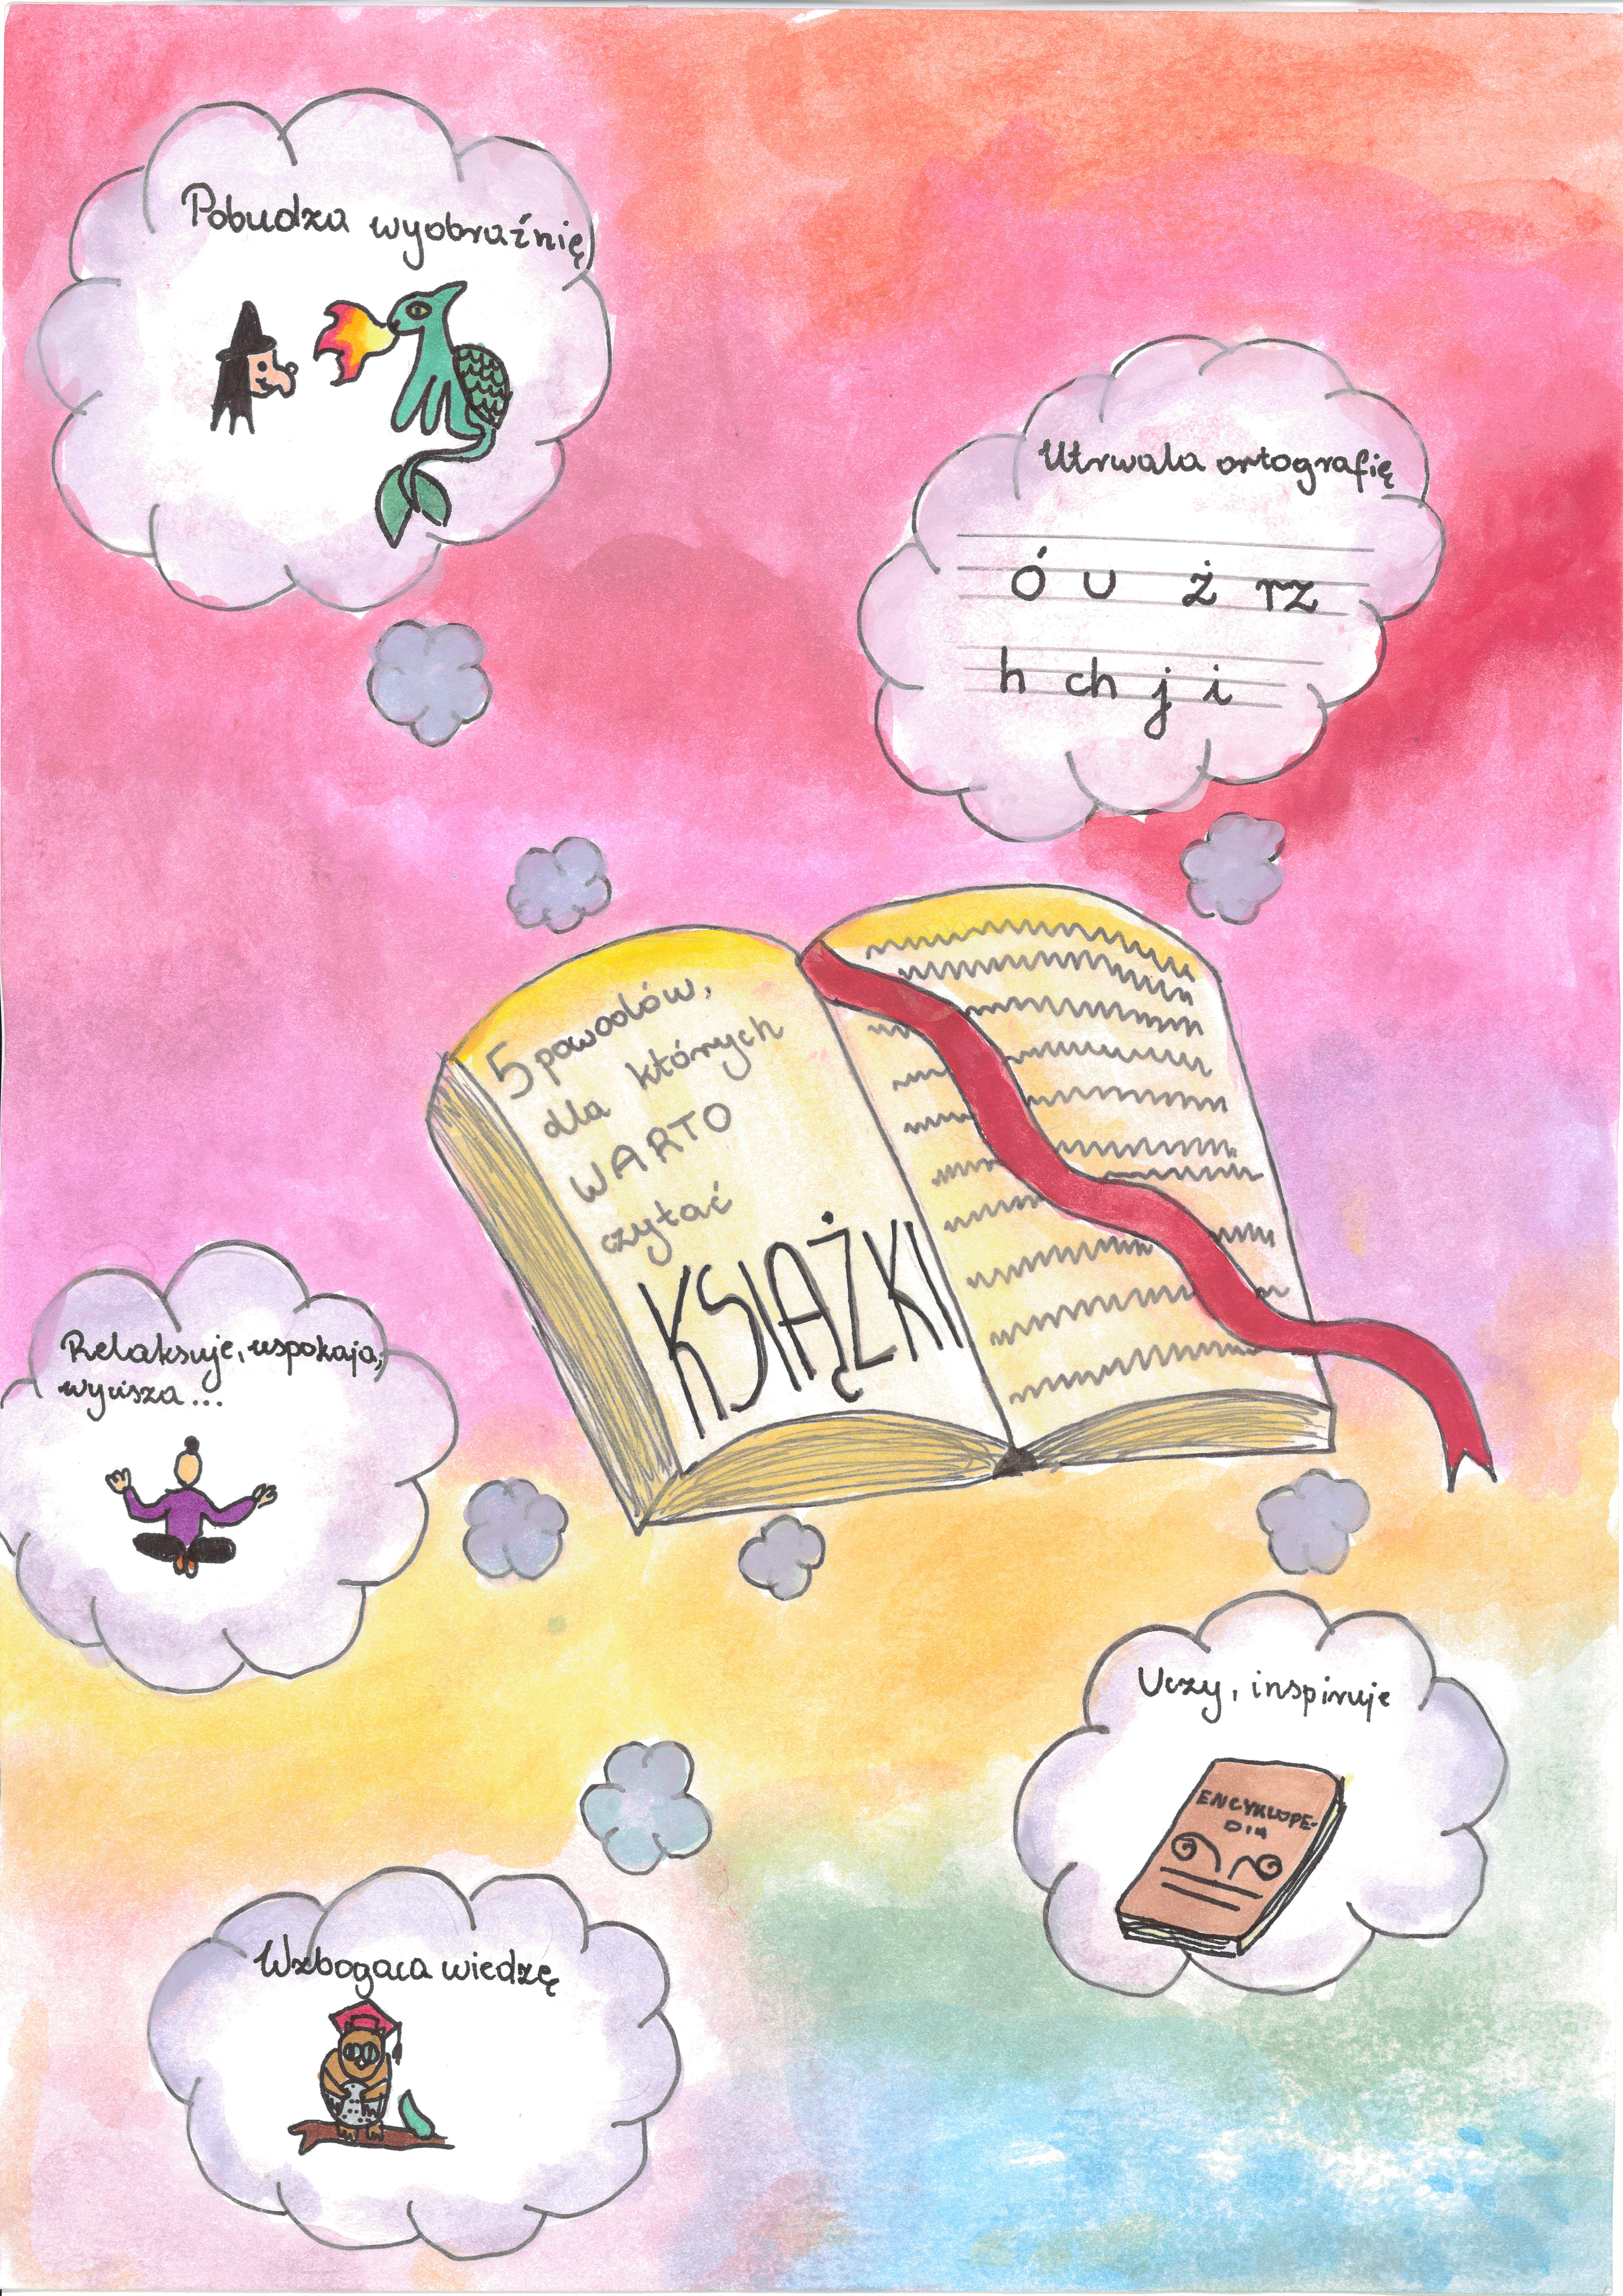 Pobudza wyobraźnię
Utrwala ortografię
ó u ż rz
h ch j i
5 powodów,
dla których
WARTO
czytać
KSIĄŻKI
Relaksuje, uspokaja,
wycisza...
Uczy, inspiruje
ENCYKLOPE-
DIA
Wzbogaca wiedzę